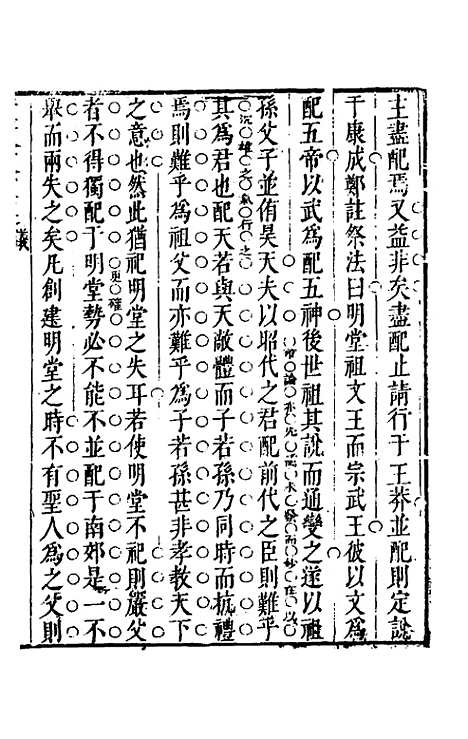 主盡配焉又益非矣盡配止請行于王莽並配則定說
于康成鄭註祭法曰明堂祖文王而宗武王彼以文為
配五帝以武為配五神後世祖其說而通變之遂以祖
孫父子並侑昊天夫以昭代之君配前代之臣則難乎
其為君也配天若與天敵體而子若孫乃同時而抗禮
焉則難乎為祖父而亦難乎為子若孫甚非孝教天下
之意也然此猶祀明堂之失耳若使明堂不祀則嚴父
者不得獨配于明堂勢必不能不並配于南郊是一不
舉而兩失之矣凡創建明堂之時不有聖人為之父則